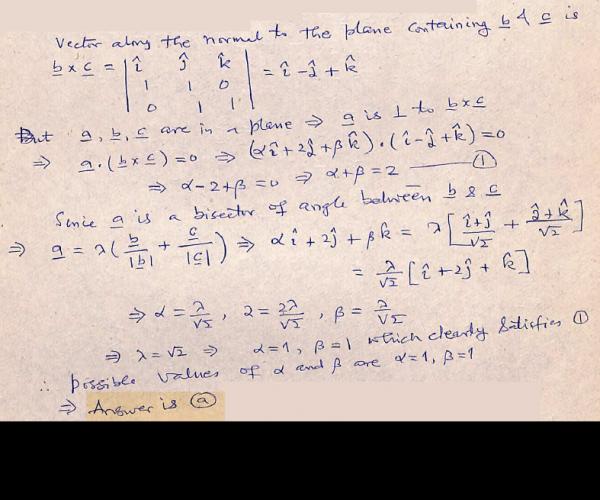 Vector along the normal to the plane containing b & c is
b × c = | î ĵ k̂ | = î - ĵ + k̂
1 1 0
0 1 1
But a, b, c are in a plane ⇒ a is ⊥ to b×c
⇒ a.(b×c) = 0 ⇒ (αî + 2ĵ + βk̂).(î - ĵ + k̂) = 0
⇒ α - 2 + β = 0 ⇒ α + β = 2 — ①
Since a is a bisector of angle between b & c
⇒ a = λ(b/|b| + c/|c|) ⇒ αî + 2ĵ + βk̂ = λ[(î+ĵ)/√2 + (ĵ+k̂)/√2]
= λ/√2 [î + 2ĵ + k̂]
⇒ α = λ/√2, 2 = 2λ/√2, β = λ/√2
⇒ λ = √2 ⇒ α = 1, β = 1 which clearly satisfies ①
∴ possible values of α and β are α = 1, β = 1
⇒ Answer is ⓐ